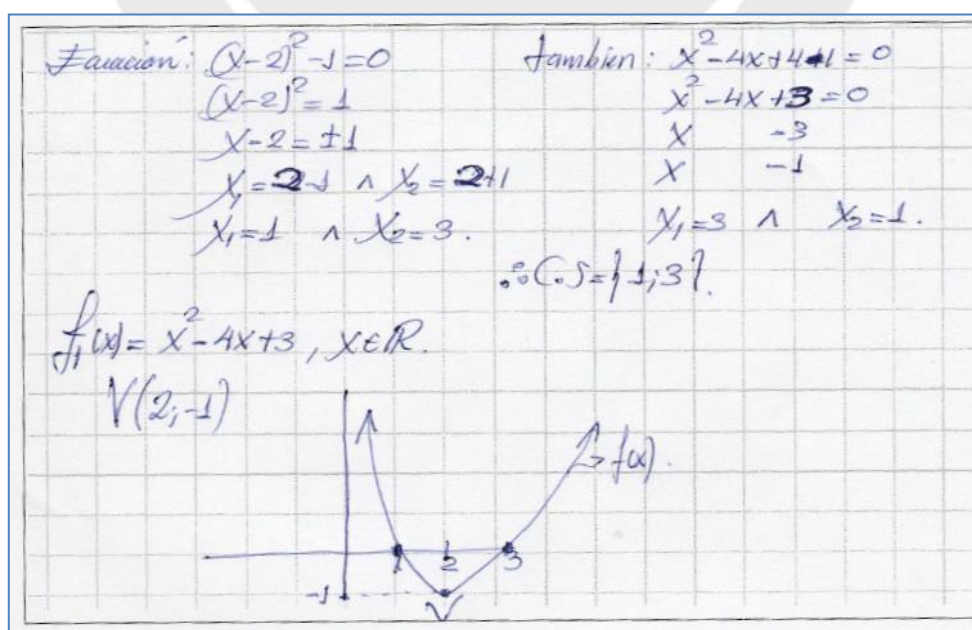 Ecuación: (x-2)²-1=0
(x-2)²=1
x-2=±1
x₁=2-1 ∧ x₂=2+1
x₁=1 ∧ x₂=3.
tambien: x²-4x+4-1=0
x²-4x+3=0
x -3
x -1
x₁=3 ∧ x₂=1.
∴ C.S={1;3}.
f₁(x)= x²-4x+3, x∈ℝ.
V(2;-1)
f(x).
1 2 3
-1
V